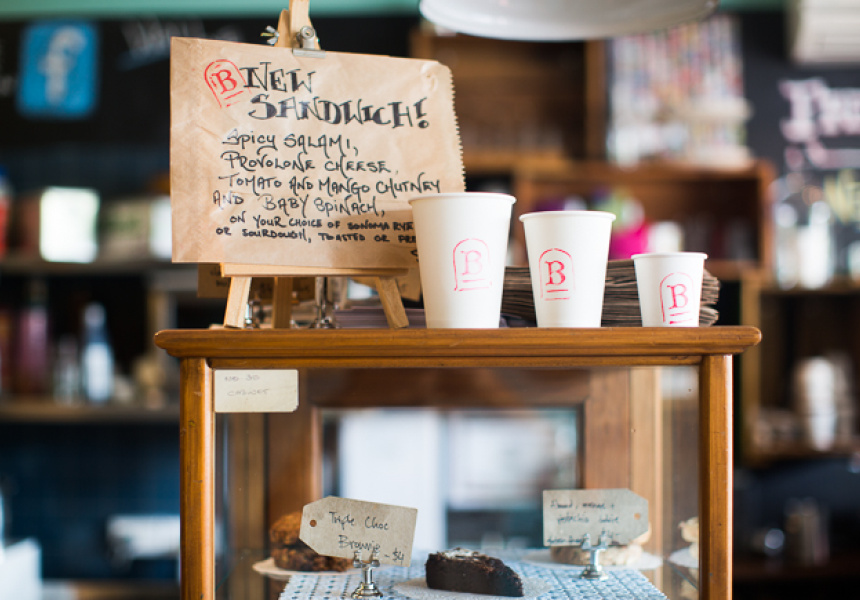 B NEW
SANDWICH!
Spicy SALAMI,
PROVOLONE CHEESE,
TOMATO AND MANGO CHUTNEY
AND BABY SPINACH,
ON YOUR CHOICE OF SONOMA RYE
OR SOURDOUGH, TOASTED OR
B
B
B
Triple Choc
Brownie - $4